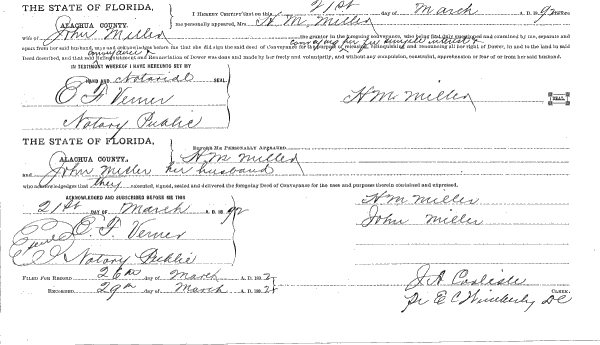 THE STATE OF FLORIDA,
ALACHUA COUNTY.
I HEREBY CERTIFY that on this 21st day of March A. D. 92 before
me personally appeared, Mrs H. M. Miller
Wife of John Miller the grantor in the foregoing conveyance, who being that duly questioned and examined by me, separate and
apart from her said husband, says and acknowledges before me that she did sign the said deed of Conveyance for the purpose of releasing, relinquishing and renouncing all her right of Dower, in and to the land in said
Deed described, and that said Relinquishment and Renunciation of Dower was done and made by her freely and voluntarily, and without any compulsion, constraint, apprehension or fear of or from her said husband.
IN TESTIMONY WHEREOF I HAVE HEREUNTO SET MY
HAND AND Notarial SEAL.
E F Verner
Notary Public
H M Miller SEAL
THE STATE OF FLORIDA,
ALACHUA COUNTY.
BEFORE ME PERSONALLY APPEARED
H M Miller
and John Miller her husband
who acknowledges that they executed, signed, sealed and delivered the foregoing Deed of Conveyance for the uses and purposes therein contained and expressed.
ACKNOWLEDGED AND SUBSCRIBED BEFORE ME THIS
21st DAY OF March A. D. 1892
E. F Verner
Notary Public
H M Miller
John Miller
FILED FOR RECORD 26th day of March A. D. 1892
RECORDED 29th day of March A. D. 1892
J. A Carlisle
CLERK.
Pr E C Wimberly DC